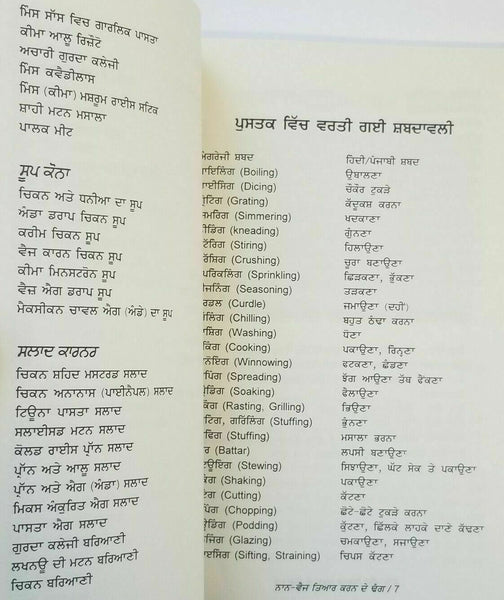 ਮਿੰਸ ਸੱਸ ਵਿਚ ਗਾਰਲਿਕ ਪਾਸਤਾ
ਕੀਮਾ ਆਲੂ ਰਿਜ਼ੋਟੋ
ਅਚਾਰੀ ਗੁਰਦਾ ਕਲੇਜੀ
ਮਿੰਸ ਕਵੈਡੀਲਾਸ
ਮਿੰਸ (ਕੀਮਾ) ਮਸ਼ਰੂਮ ਰਾਈਸ ਸਟਿਕ
ਸ਼ਾਹੀ ਮਟਨ ਮਸਾਲਾ
ਪਾਲਕ ਮੀਟ
ਸੂਪ ਕੋਨਾ
ਚਿਕਨ ਅਤੇ ਧਨੀਆ ਦਾ ਸੂਪ
ਅੰਡਾ ਡਰਾਪ ਚਿਕਨ ਸੂਪ
ਕਰੀਮ ਚਿਕਨ ਸੂਪ
ਵੈਜ ਕਾਰਨ ਚਿਕਨ ਸੂਪ
ਕੀਮਾ ਮਿਨਸਟਰੋਨ ਸੂਪ
ਵੈਜ਼ ਐਗ ਡਰਾਪ ਸੂਪ
ਮੈਕਸੀਕਨ ਚਾਵਲ ਐਗ (ਅੰਡੇ) ਦਾ ਸੂਪ
ਸਲਾਦ ਕਾਰਨਰ
ਚਿਕਨ ਸ਼ਹਿਦ ਮਸਟਰਡ ਸਲਾਦ
ਚਿਕਨ ਅਨਾਨਾਸ (ਪਾਈਨੈਪਲ) ਸਲਾਦ
ਟਿਊਨਾ ਪਾਸਤਾ ਸਲਾਦ
ਸਲਾਈਸਡ ਮਟਨ ਸਲਾਦ
ਕੋਲਡ ਰਾਈਸ ਪ੍ਰਾੱਨ ਸਲਾਦ
ਪ੍ਰਾੱਨ ਅਤੇ ਆਲੂ ਸਲਾਦ
ਪ੍ਰਾੱਨ ਅਤੇ ਐਗ (ਅੰਡਾ) ਸਲਾਦ
ਮਿਕਸ ਅੰਕੁਰਿਤ ਐਗ ਸਲਾਦ
ਪਾਸਤਾ ਐਗ ਸਲਾਦ
ਗੁਰਦਾ ਕਲੇਜੀ ਬਰਿਆਣੀ
ਲਖਨਊ ਦੀ ਮਟਨ ਬਰਿਆਣੀ
ਚਿਕਨ ਬਰਿਆਣੀ
ਪੁਸਤਕ ਵਿੱਚ ਵਰਤੀ ਗਈ ਸ਼ਬਦਾਵਲੀ
ਸ਼ਬਦ ਹਿਦੀ/ਪੰਜਾਬੀ ਸ਼ਬਦ
(Boiling) ਉਬਾਲਣਾ
(Dicing) ਚੌਕੋਰ ਟੁਕੜੇ
(Grating) ਕੱਦੂਕਸ਼ ਕਰਨਾ
(Simmering) ਖਦਕਾਣਾ
(kneading) ਗੁੰਨਣਾ
(Stiring) ਹਿਲਾਉਣਾ
(Crushing) ਚੂਰਾ ਬਣਾਉਣਾ
(Sprinkling) ਛਿੜਕਣਾ, ਭੁੱਕਣਾ
(Seasoning) ਤੜਕਣਾ
(Curdle) ਜਮਾਉਣਾ (ਦਹੀਂ)
(Chilling) ਬਹੁਤ ਠੰਢਾ ਕਰਨਾ
(Washing) ਧੋਣਾ
(Cooking) ਪਕਾਉਣਾ, ਰਿਨ੍ਹਣਾ
(Winnowing) ਫਟਕਣਾ, ਛੰਡਣਾ
(Spreading) ਝੱਗ ਆਉਣਾ ਤੱਥ ਫੈਂਕਣਾ
(Soaking) ਫੈਲਾਉਣਾ
(Rasting, Grilling) ਭਿਉਣਾ
ਗਰਿੱਲਿੰਗ (Stuffing) ਭੁੰਨਣਾ
(Stuffing) ਮਸਾਲਾ ਭਰਨਾ
(Battar) ਲਪਸੀ ਬਣਾਉਣਾ
(Stewing) ਸਿਝਾਉਣਾ, ਘੱਟ ਸੇਕ ਤੇ ਪਕਾਉਣਾ
(Shaking) ਪਕਾਉਣਾ
(Cutting) ਕੱਟਣਾ
(Chopping) ਛੋਟੇ-ਛੋਟੇ ਟੁਕੜੇ ਕਰਨਾ
(Podding) ਕੁੱਟਣਾ, ਛਿੱਲਕੇ ਲਾਹਕੇ ਦਾਣੇ ਕੱਢਣਾ
(Glazing) ਚਮਕਾਉਣਾ, ਸਜਾਉਣਾ
(Sifting, Straining) ਚਿਪਸ ਕੱਟਣਾ
ਨਾਨ-ਵੈਜ ਤਿਆਰ ਕਰਨ ਦੇ ਢੰਗ / 7